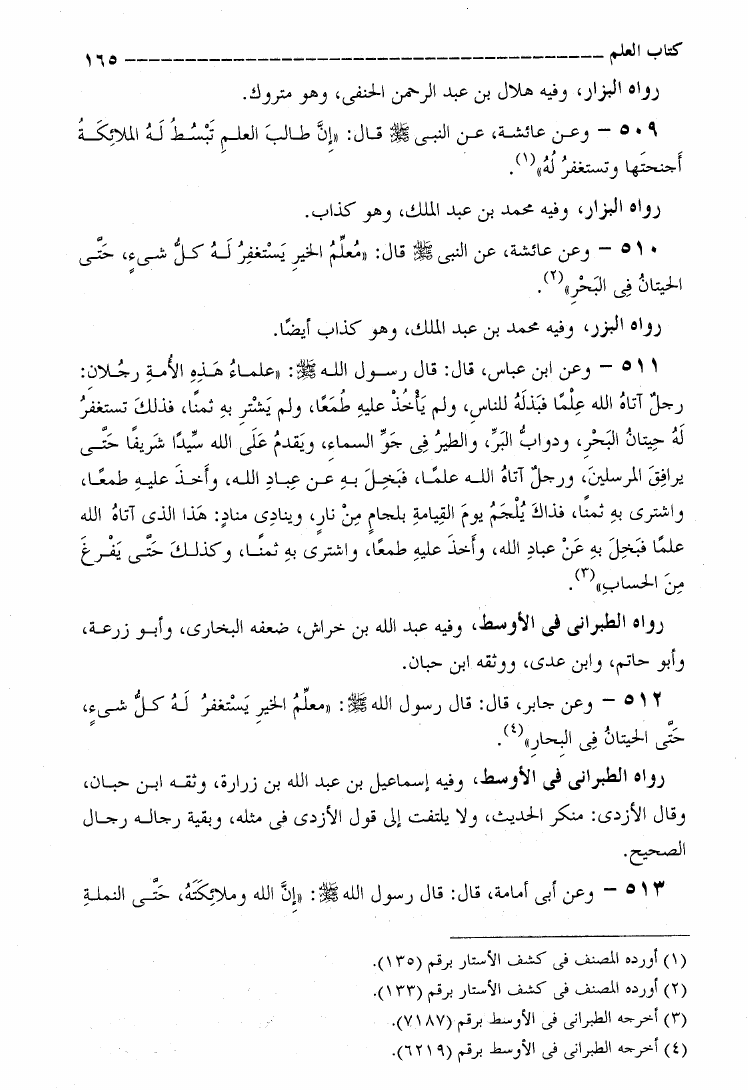 كتاب العلم ــــــــــــــــــــــــــــــــــــــــــــــــ ١٦٥
رواه البزار، وفيه هلال بن عبد الرحمن الحنفى، وهو متروك.
٥٠٩ – وعن عائشة، عن النبى ﷺ قال: «إنَّ طالبَ العلمِ تَبْسُطُ لَهُ الملائِكَةُ
أجنحتَها وتستغفرُ لُهُ»(١).
رواه البزار، وفيه محمد بن عبد الملك، وهو كذاب.
٥١٠ – وعن عائشة، عن النبى ﷺ قال: «مُعلِّمُ الخيرِ يَسْتغفِرُ لَهُ كلُّ شىءٍ، حَتَّى
الحيتانُ فِى البَحْرِ»(٢).
رواه البزر، وفيه محمد بن عبد الملك، وهو كذاب أيضًا.
٥١١ – وعن ابن عباس، قال: قال رسول الله ﷺ: «علماءُ هَذِهِ الأُمةِ رجُلانِ:
رجلٌ آتاهُ الله عِلْمًا فبَذلَهُ للناسِ، ولم يَأْخُذْ عليهِ طُمَعًا، ولم يَشْترِ بهِ ثمنًا، فذلكَ تستغفرُ
لَهُ حِيتانُ البَحْرِ، ودوابُّ البَرِّ، والطيرُ فِى جَوِّ السماءِ، ويَقدمُ عَلَى الله سيِّدًا شَريفًا حَتَّى
يرافِقَ المرسلينَ، ورجلٌ آتاهُ الله علمًا، فبَخِلَ بهِ عن عِبادِ الله، وأخذَ عليهِ طمعًا،
واشترى بهِ ثمنًا، فذاكَ يُلْجَمُ يومَ القيامةِ بلجامٍ مِنْ نارٍ، وينادِى منادٍ: هَذا الذى آتاهُ الله
علمًا فبَخِلَ بهِ عَنْ عبادِ الله، وأخذَ عليهِ طمعًا، واشترى بهِ ثمنًا، وكذلكَ حَتَّى يَفْرغَ
مِنَ الحسابِ»(٣).
رواه الطبرانى فى الأوسط، وفيه عبد الله بن خراش، ضعفه البخارى، وأبو زرعة،
وأبو حاتم، وابن عدى، ووثقه ابن حبان.
٥١٢ – وعن جابر، قال: قال رسول الله ﷺ: «معلِّمُ الخيرِ يَسْتغفرُ لَهُ كلُّ شىءٍ،
حَتَّى الحيتانُ فِى البِحارِ»(٤).
رواه الطبرانى فى الأوسط، وفيه إسماعيل بن عبد الله بن زرارة، وثقه ابن حبان،
وقال الأزدى: منكر الحديث، ولا يلتفت إلى قول الأزدى فى مثله، وبقية رجاله رجال
الصحيح.
٥١٣ – وعن أبى أمامة، قال: قال رسول الله ﷺ: «إنَّ الله وملائِكتَهُ، حَتَّى النملةِ
(١) أورده المصنف فى كشف الأستار برقم (١٣٥).
(٢) أورده المصنف فى كشف الأستار برقم (١٣٣).
(٣) أخرجه الطبرانى فى الأوسط برقم (٧١٨٧).
(٤) أخرجه الطبرانى فى الأوسط برقم (٦٢١٩).